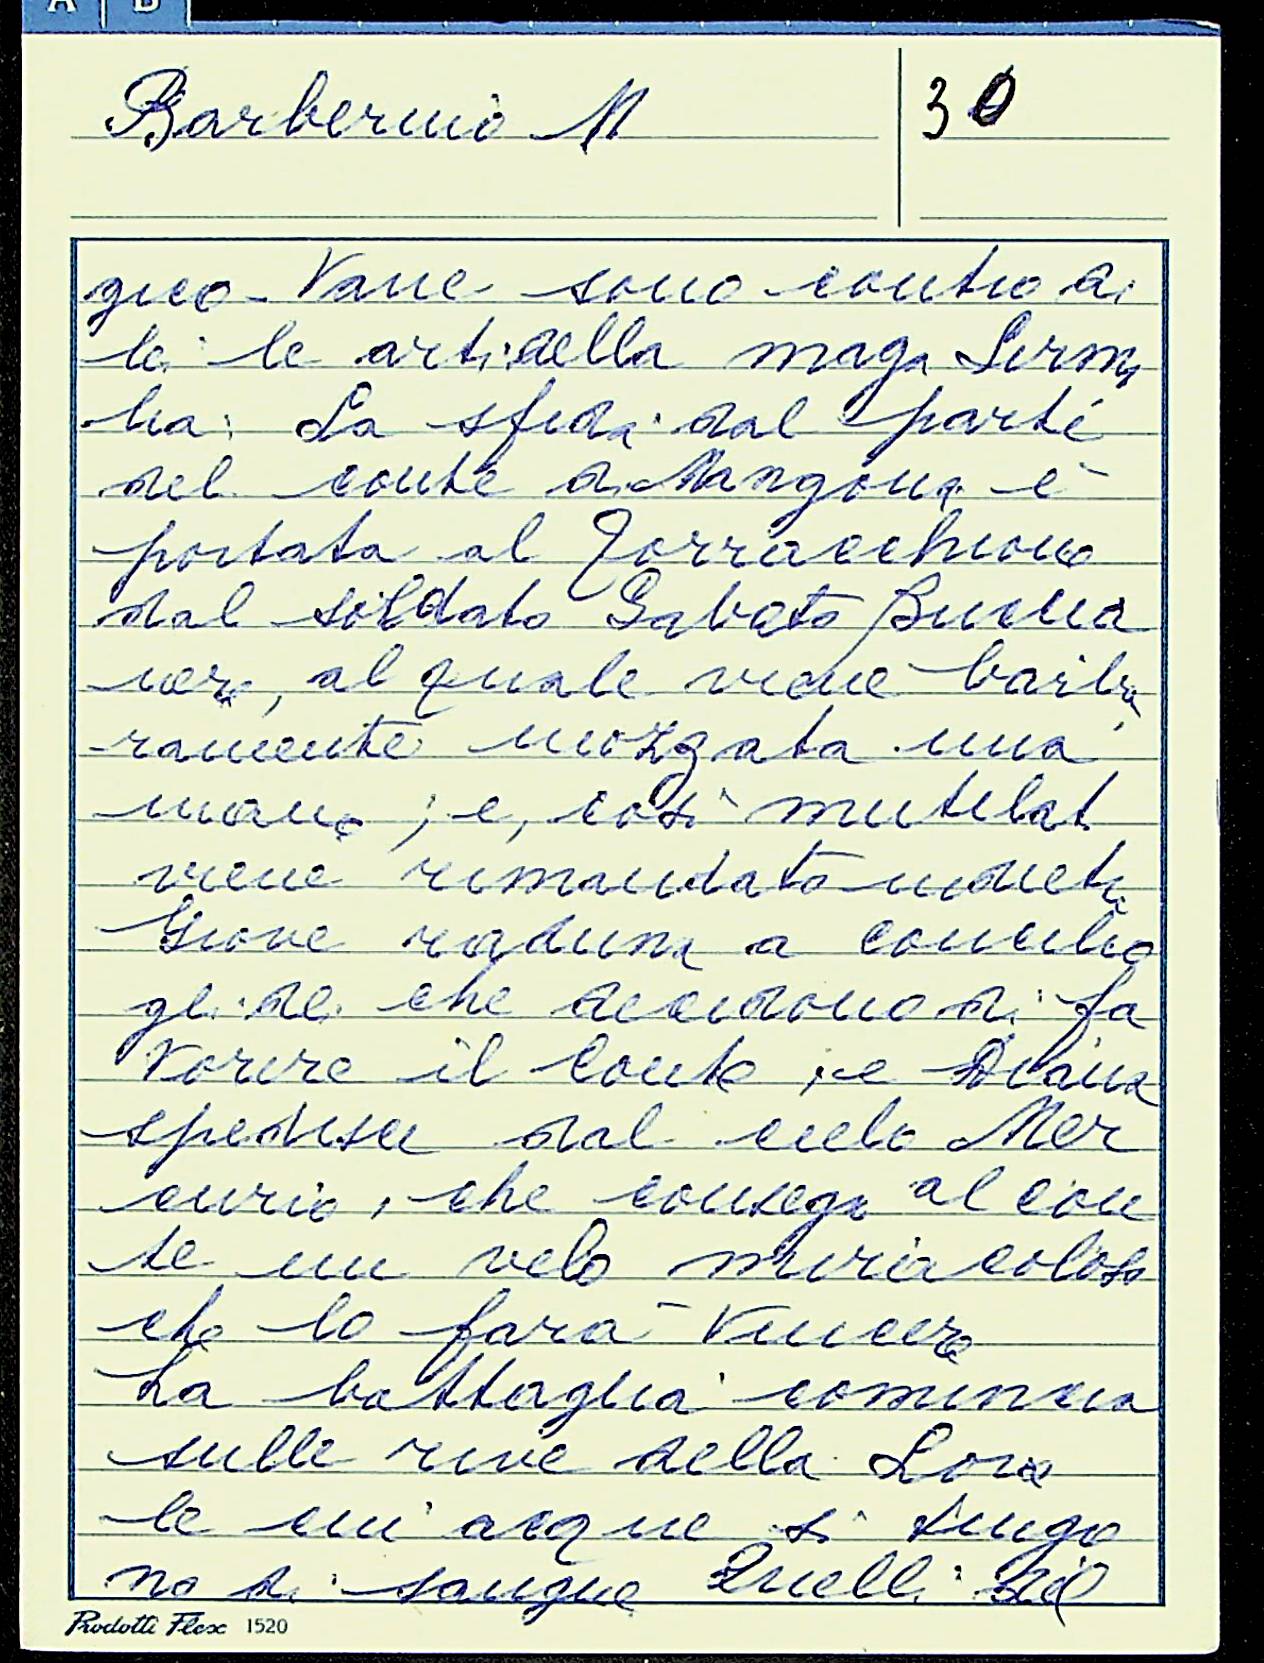 A B
Barberino M
30
gico. Vane sono contro di
lei le arti della maga Sirmi
lia: La sfida dal parte
del conte di Mangona è
portata al Torracchione
dal soldato Gabato Buona
, al quale viene barba
ramente mozzata una
mano; e, così mutilat
viene rimandato indietro
Giove raduna a concilio
gli dei che decidono di fa
vorire il Conte; e Diana
spedisce dal cielo Mer
curio, che consegna al con
te un velo miracoloso
che lo farà vincere
La battaglia comincia
sulle rive della Lora
le cui acque si tingo
no di sangue Quelli del
Prodotti Flex 1520